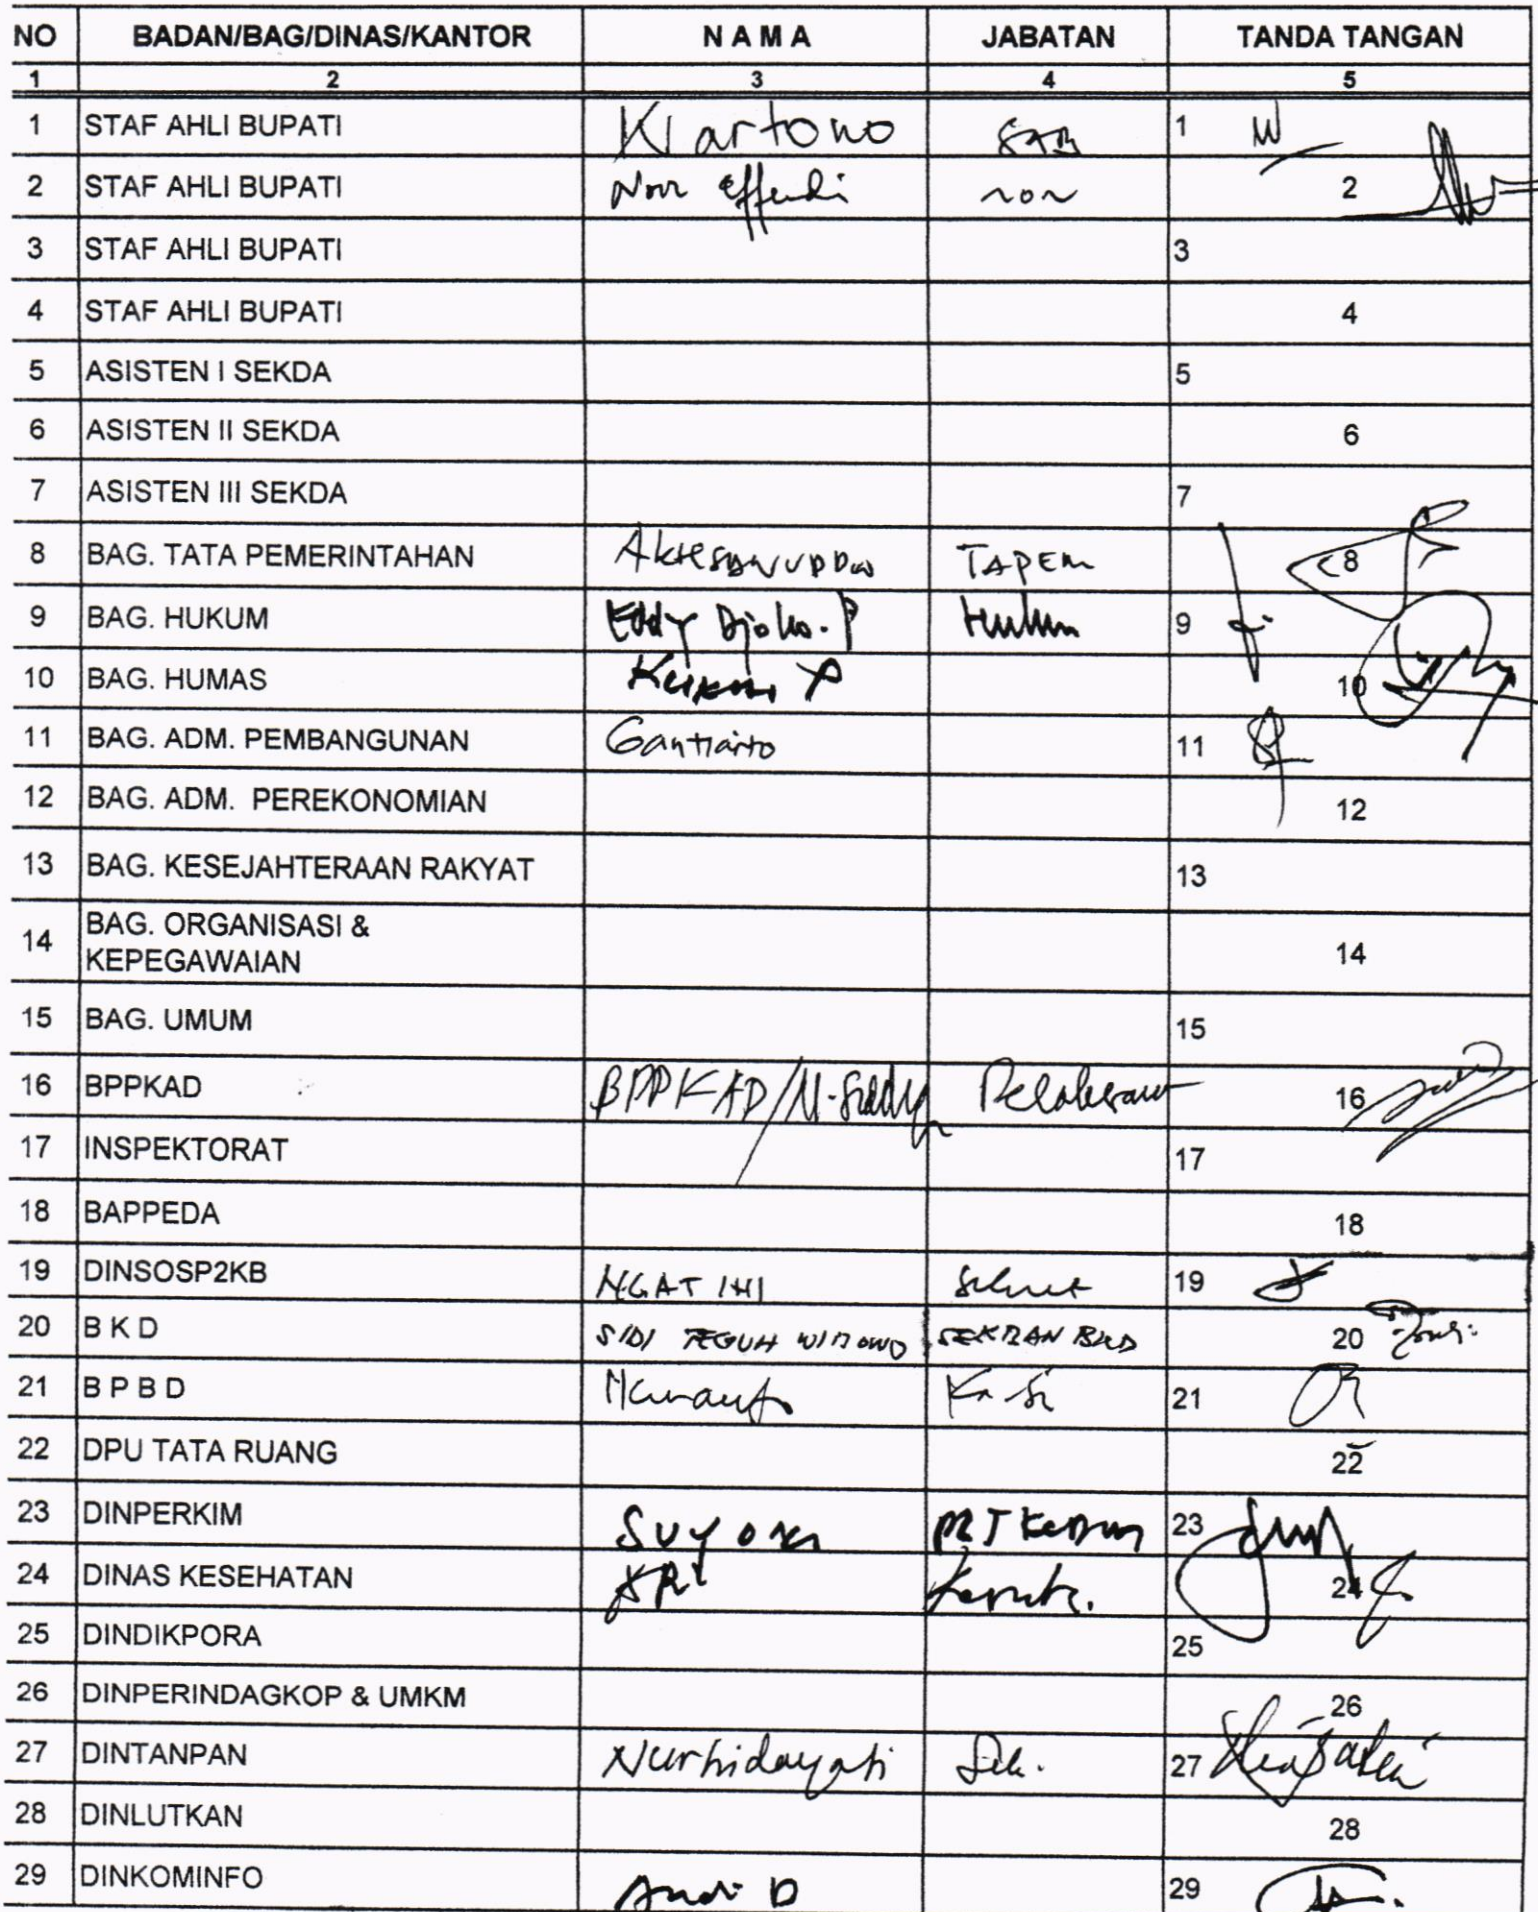 NO BADAN/BAG/DINAS/KANTOR N A M A JABATAN TANDA TANGAN
1 2 3 4 5
1 STAF AHLI BUPATI Kartono SAB 1
2 STAF AHLI BUPATI Noor Effendi 2
3 STAF AHLI BUPATI 3
4 STAF AHLI BUPATI 4
5 ASISTEN I SEKDA 5
6 ASISTEN II SEKDA 6
7 ASISTEN III SEKDA 7
8 BAG. TATA PEMERINTAHAN TAPEM 8
9 BAG. HUKUM Eddy Djoko. P Hukum 9
10 BAG. HUMAS 10
11 BAG. ADM. PEMBANGUNAN Gantiarto 11
12 BAG. ADM. PEREKONOMIAN 12
13 BAG. KESEJAHTERAAN RAKYAT 13
14 BAG. ORGANISASI &
KEPEGAWAIAN 14
15 BAG. UMUM 15
16 BPPKAD BPPKAD/M. 16
17 INSPEKTORAT 17
18 BAPPEDA 18
19 DINSOSP2KB NGATINI 19
20 B K D SIDI TEGUH WIBOWO SEKBAN BKD 20
21 B P B D Kasi 21
22 DPU TATA RUANG 22
23 DINPERKIM 23
24 DINAS KESEHATAN 24
25 DINDIKPORA 25
26 DINPERINDAGKOP & UMKM 26
27 DINTANPAN Nurhidayati Sek. 27
28 DINLUTKAN 28
29 DINKOMINFO Andi D 29